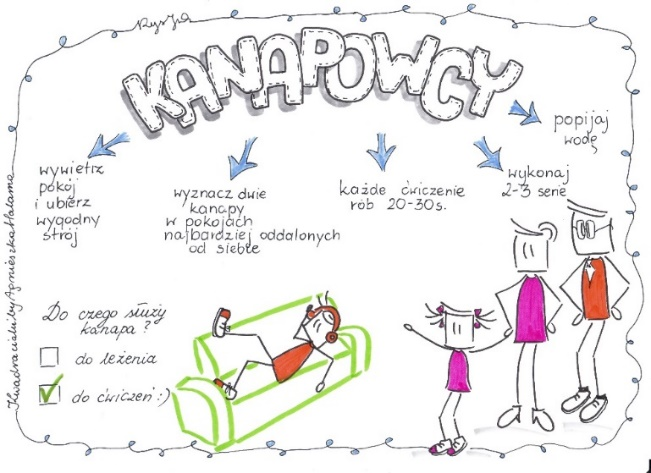 Ryszja
KANAPOWCY
popijaj
wodę
wywietrz
pokój
i ubierz
wygodny
strój
wyznacz dwie
kanapy
w pokojach
najbardziej oddalonych
od siebie
każde ćwiczenie
rób 20-30s.
wykonaj
2-3 serie
Do czego służy
kanapa?
do leżenia
do ćwiczeń:)
by Agnieszka Halama